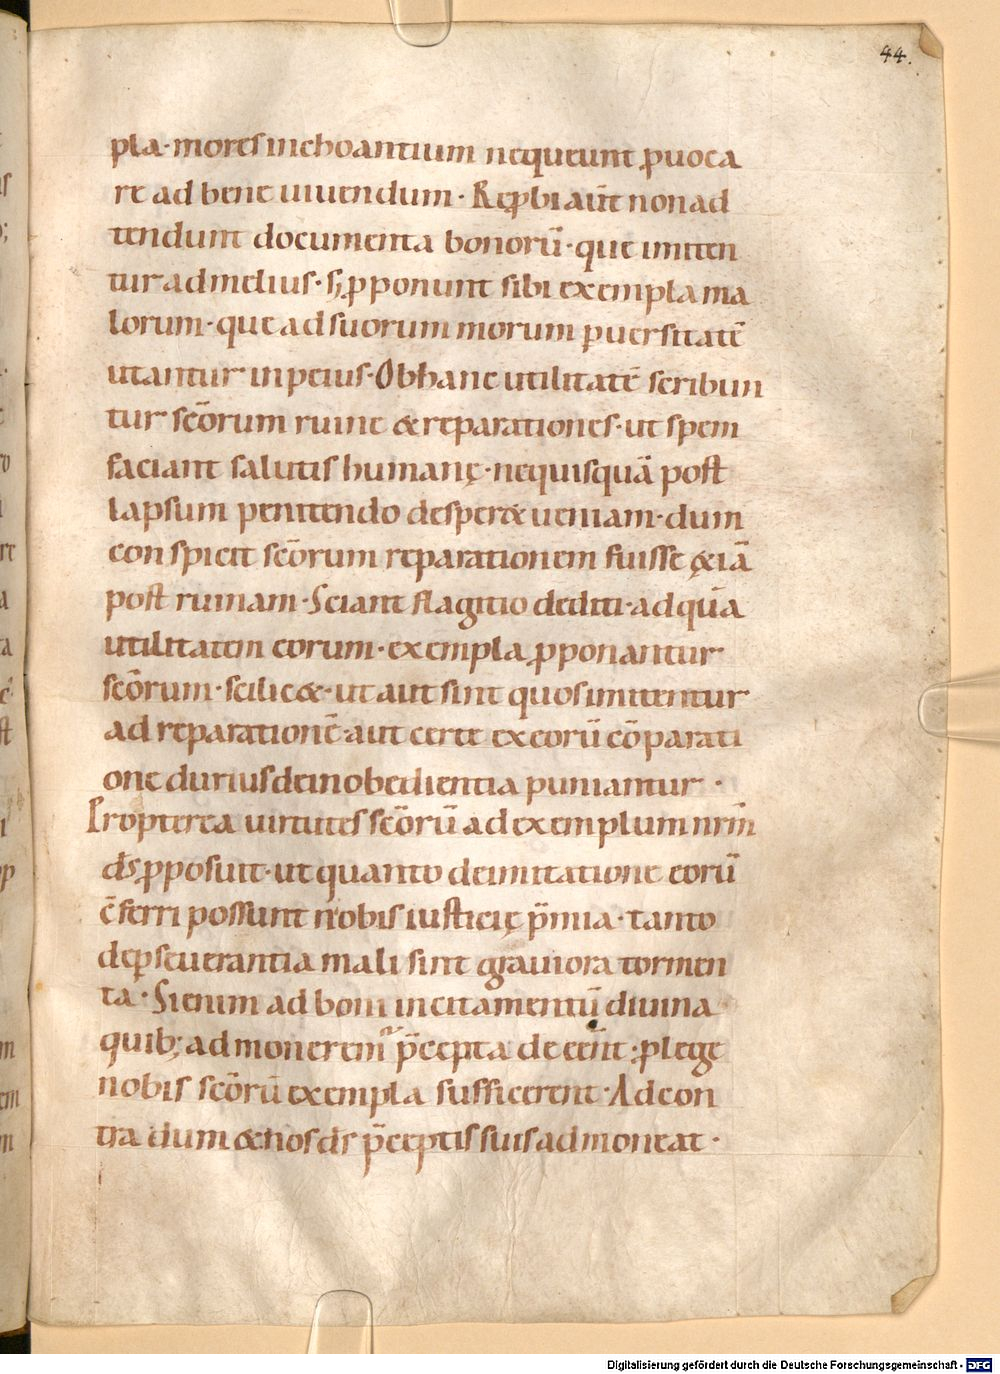 44.
pla·mores inchoantium nequeunt ꝓuoca
re ad bene uiuendum· Reꝓbi aut̄ non ad
tendunt documenta bonorū·que imiten
tur ad melius· s; ꝓponunt sibi exempla ma
lorum·que ad suorum morum puersitatē
utantur in peius·Ob hanc utilitatē scribun
tur sc̄orum ruine & reparationes·ut spem
faciant salutis humanę·ne quisquā post
lapsum penitendo desper& ueniam·dum
conspicit sc̄orum reparationem fuisse &iā
post ruinam·Sciant flagitio dediti·ad quā
utilitatem eorum·exempla ꝓponantur
sc̄orum·scilic&·ut aut sint quos imitentur
ad reparationē·aut certe ex eorū cōparati
one durius de inobedientia puniantur·
Propterea uirtutes sc̄orū ad exemplum nr̄m
ds̄ ꝓposuit·ut quanto de imitatione eorū
c̄ferri possunt nobis iusticię p̄mia·tanto
de ꝑseuerantia mali sint grauiora tormen
ta·Si enim ad boni incitamentū diuina
quib; admoneremur p̄cepta deeēnt·ꝓ lege
nobis sc̄orū exempla sufficerent·Ad con
tra dum & nos ds̄ p̄ceptis suis admoneat·
Digitalisierung gefördert durch die Deutsche Forschungsgemeinschaft - DFG